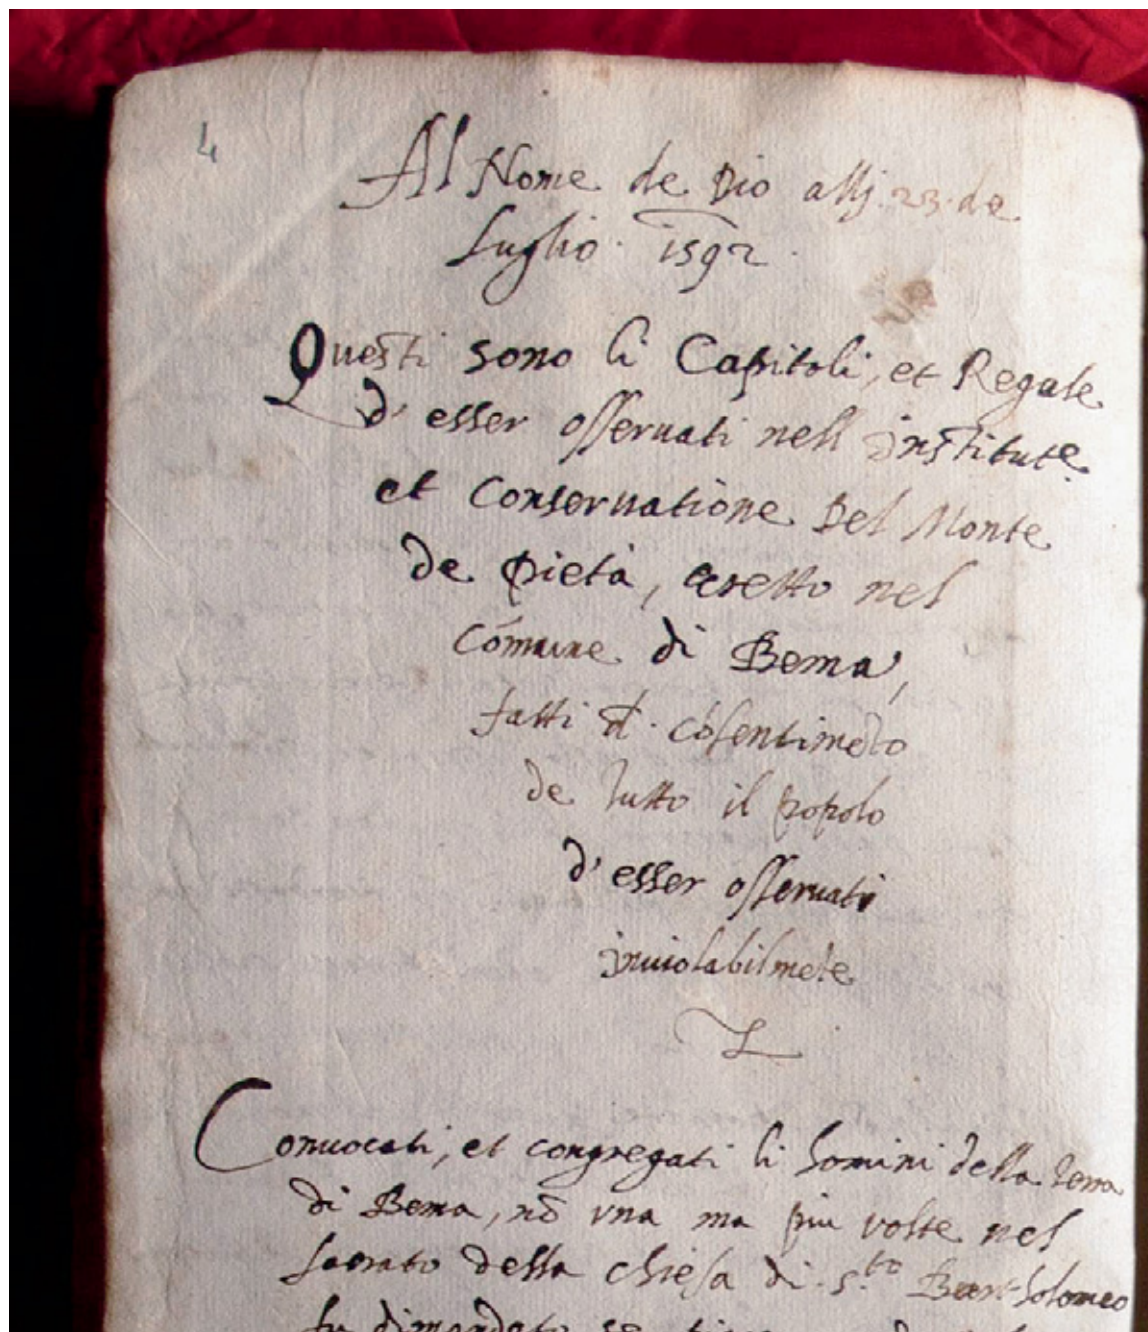 4
Al Nome de Dio allj. 23. de
Luglio. 1592.
Questi sono li Capitoli, et Regale
d'esser osseruati nell institute
et Conseruatione Del Monte
de Pietà, eretto nel
Cómune di Bema,
fatti d. cósentimeto
de tutto il popolo
d'esser osseruati
inuiolabilmete
Conuocati, et congregati li homini della terra
di Bema, nō vna ma piu volte nel
sacrato della chiesa di s.to Bartholomeo
fu dimandato se